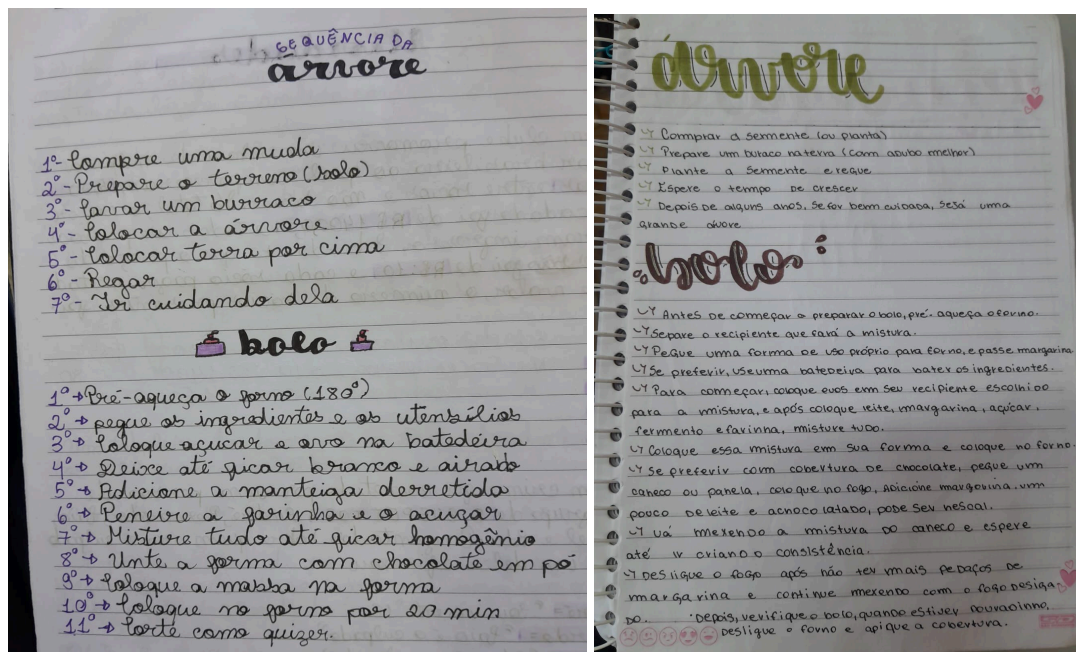 SEQUÊNCIA DA
árvore
1º- Compre uma muda
2º- Prepare o terreno (solo)
3º- Cavar um burraco
4º- Colocar a árvore
5º- Colocar terra por cima
6º- Regar
7º- Ir cuidando dela
bolo
1º→Pré-aqueça o forno (180º)
2º→ pegue os ingredientes e os utensílios
3º→ Coloque açucar e ovo na batedeira
4º→ Deixe até ficar branco e airado
5º→ Adicione a manteiga derretida
6º→ Peneire a farinha e o acuçar
7º→ Misture tudo até ficar homogênio
8º→ Unte a forma com chocolate em pó
9º→ Coloque a massa na forma
10º→ Coloque no forno por 20 min
11º→ Corte como quizer.
árvore
Comprar a semente (ou planta)
Prepare um buraco na terra (com adubo melhor)
Plante a semente e regue
Espere o tempo de crescer
Depois de alguns anos, se for bem cuidada, será uma
grande árvore
bolo:
Antes de começar a preparar o bolo, pré-aqueça o forno.
Separe o recipiente que fará a mistura.
Pegue uma forma de uso próprio para forno, e passe margarina
Se preferir, use uma batedeira para bater os ingredientes.
Para começar, coloque ovos em seu recipiente escolhido
para a mistura, e após coloque leite, margarina, açúcar,
fermento e farinha, misture tudo.
Coloque essa mistura em sua forma e coloque no forno.
Se preferir com cobertura de chocolate, pegue um
caneco ou panela, coloque no fogo, adicione margarina, um
pouco de leite e achocolatado, pode ser nescal.
Vá mexendo a mistura do caneco e espere
até ir criando consistência.
Desligue o fogo após não ter mais pedaços de
margarina e continue mexendo com o fogo desliga-
do. Depois, verifique o bolo, quando estiver douradinho,
desligue o forno e aplique a cobertura.